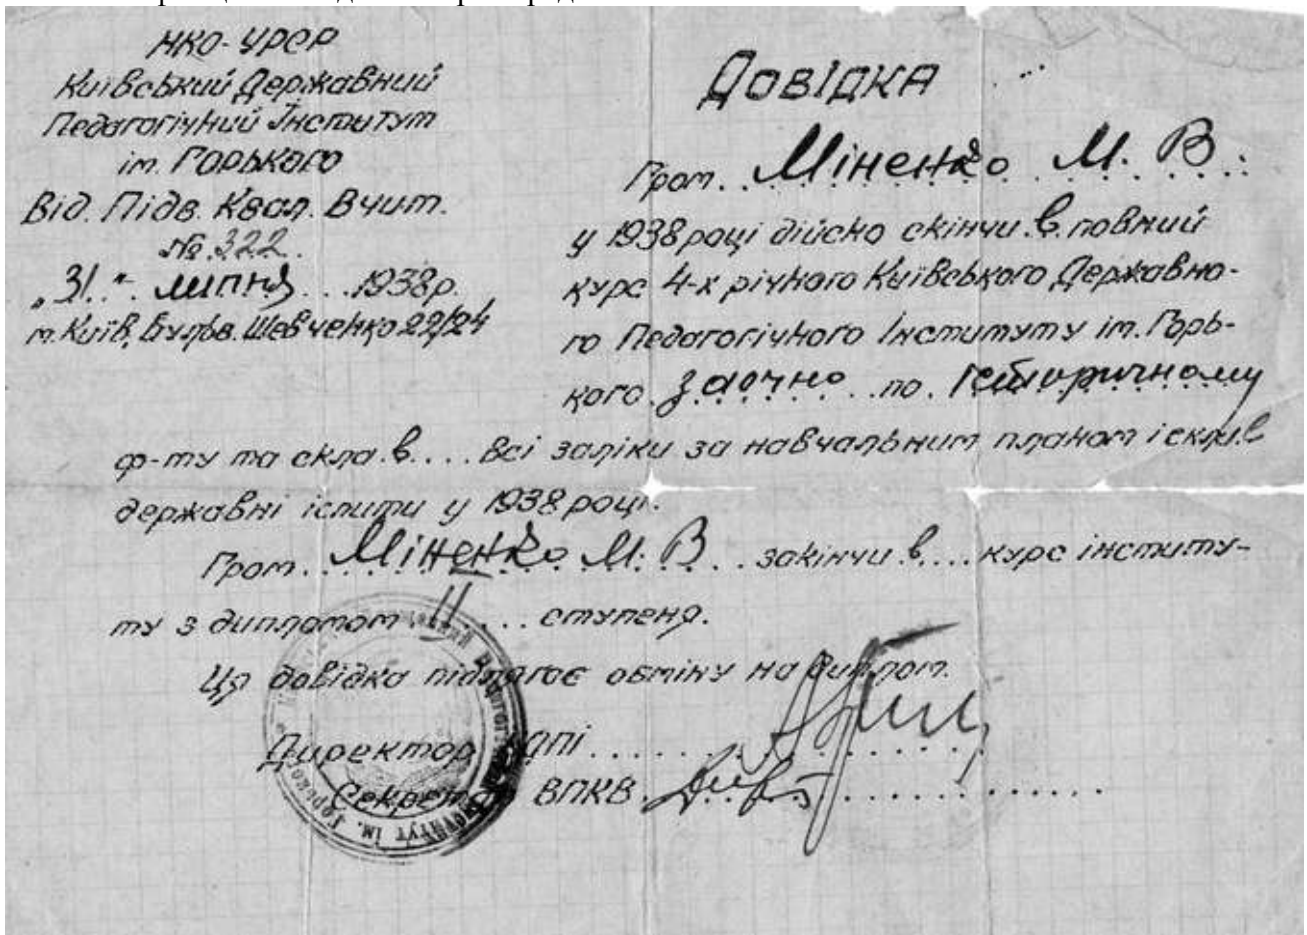 НКО-УРСР
Київський Державний
Педагогічний Інститут
ім. Горького
Від. Підв. Квал. Вчит.
№ 322.
„31" липня 1938р.
м. Київ, Бульв. Шевченко 22/24
Довідка
Гром. Міненко М. В.
у 1938 році дійсно скінчи.в. повний
курс 4-х річного Київського Державно-
го Педагогічного Інституту ім. Горь-
кого. заочно по. Історичному
ф-ту та скла.в.... всі заліки за навчальним планом і скла.в
державні іспити у 1938 році.
Гром. Міненко М. В. закінчи в.... курс інститу-
ту з дипломом II ... ступеня.
Ця довідка підлягає обміну на диплом.
Директор КДПІ
Секретар ВПКВ